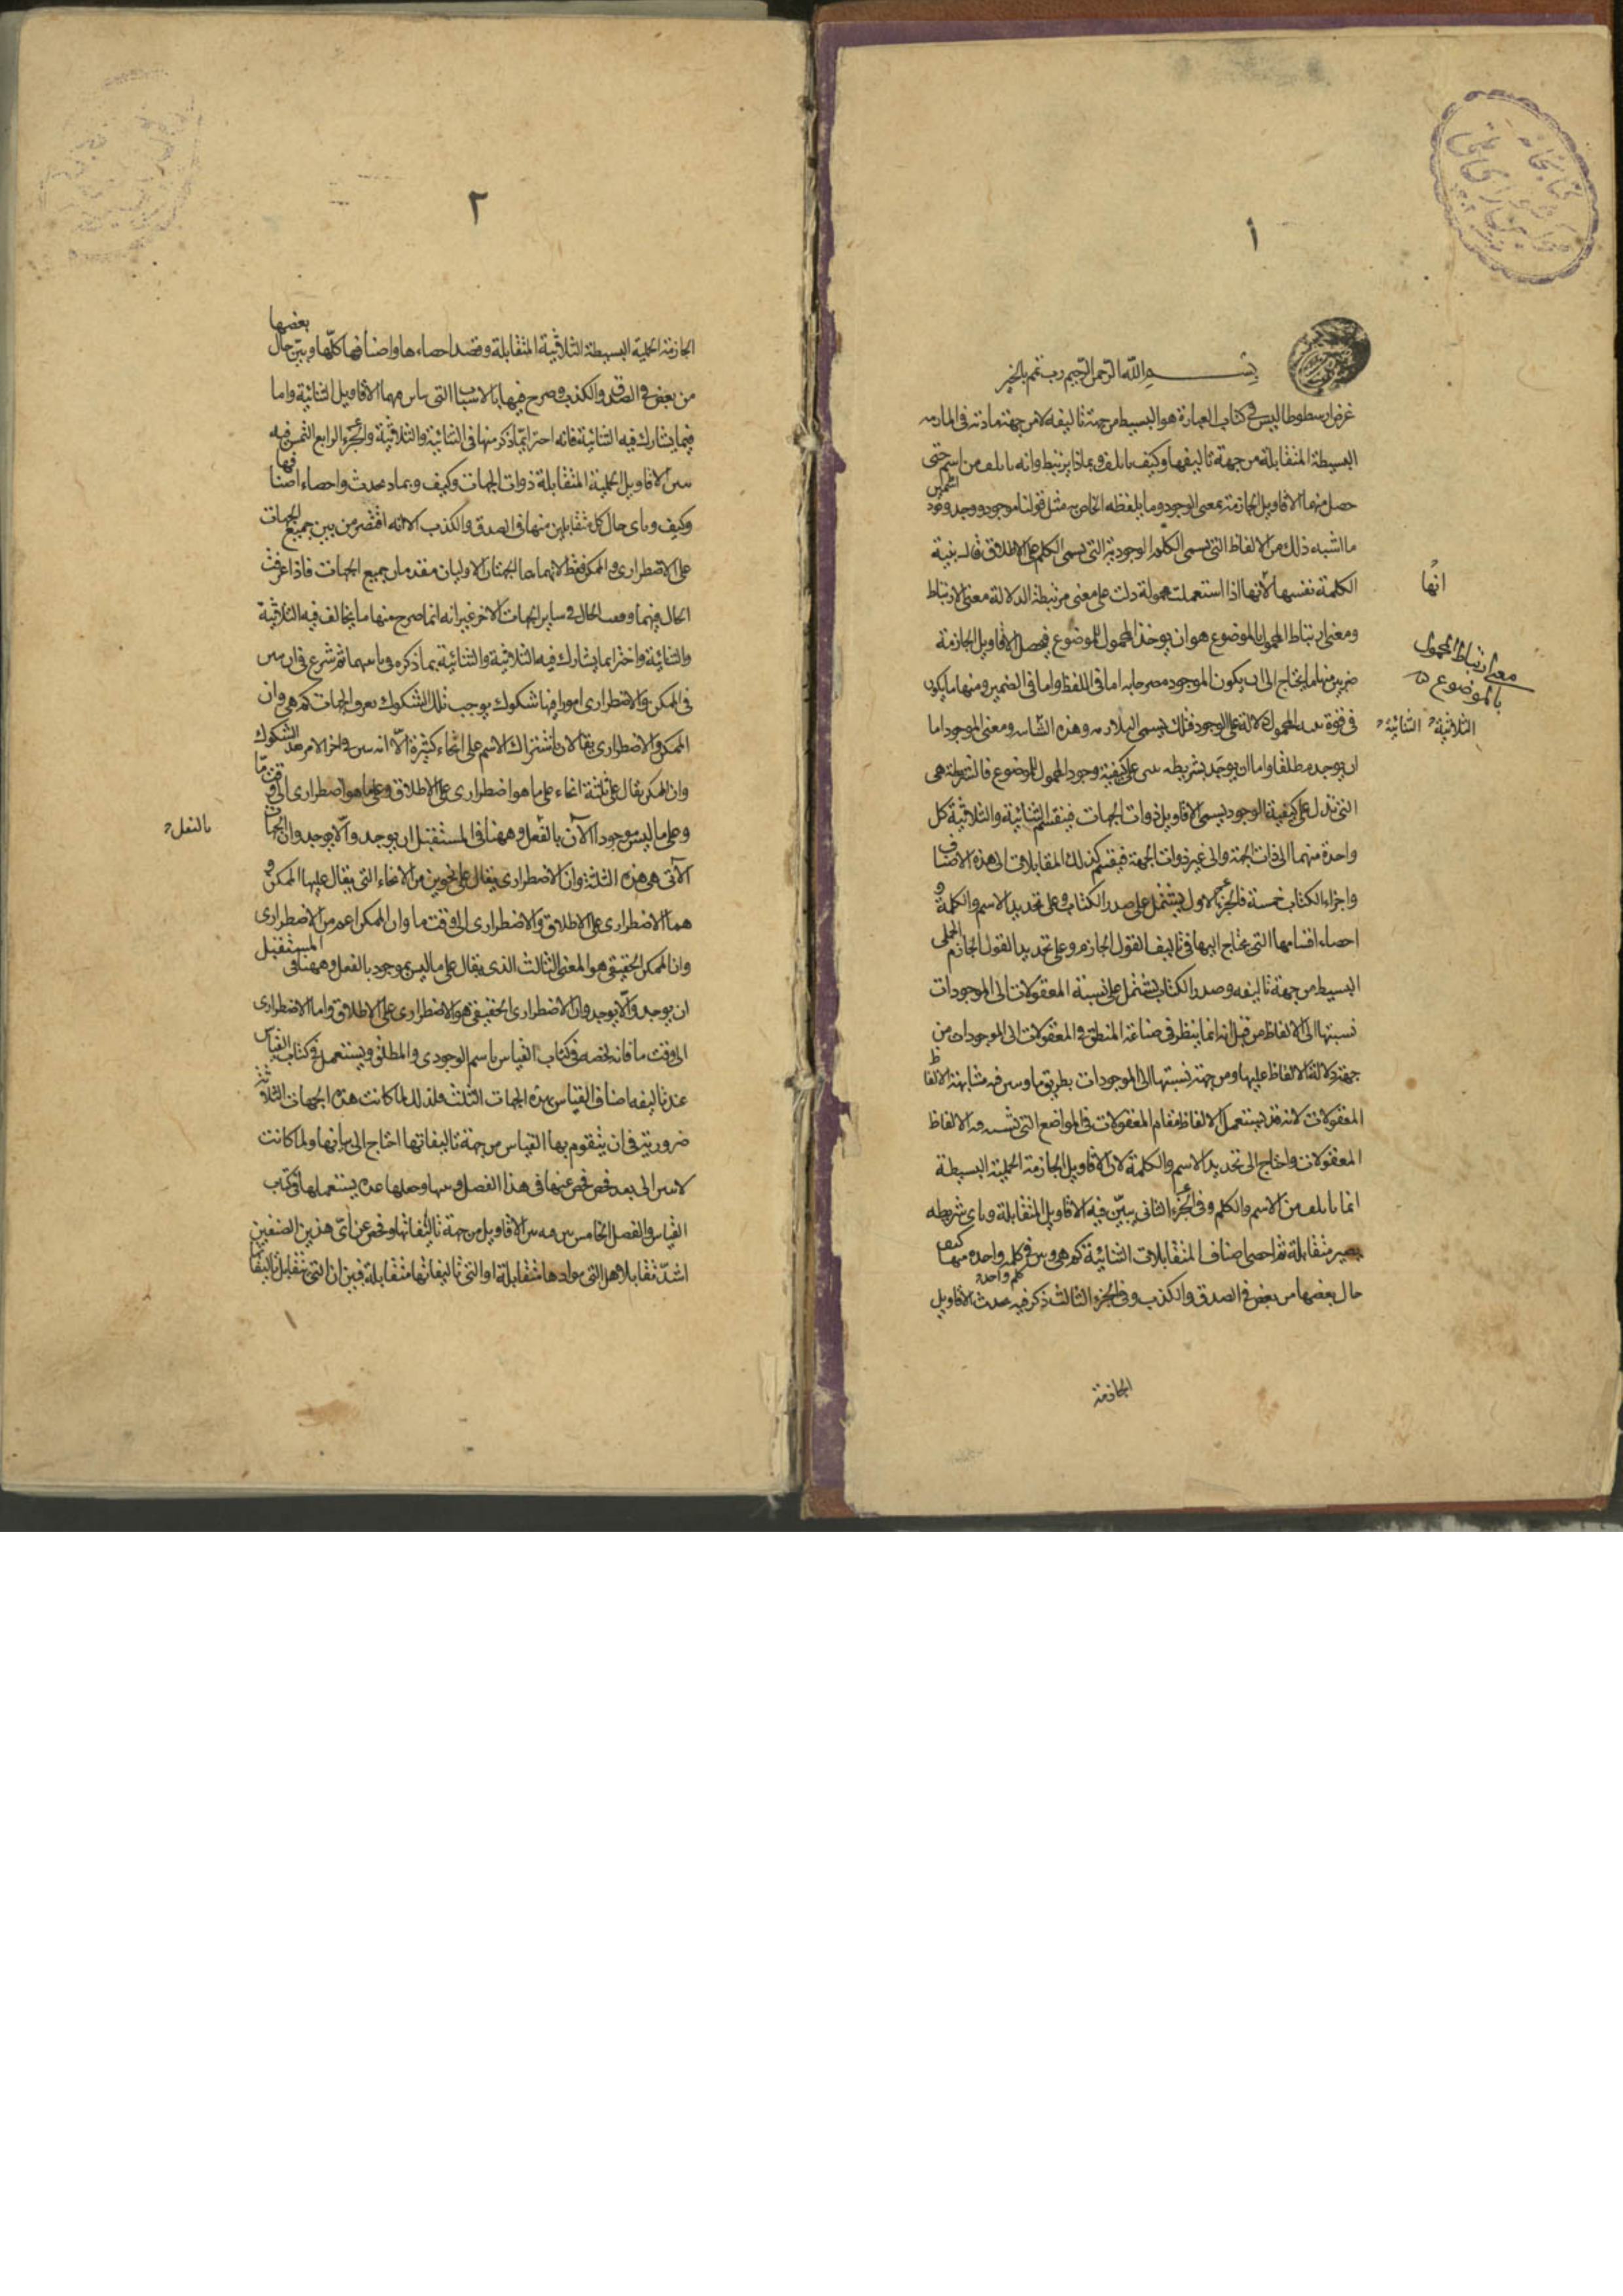 ١
بسم الله الرحمن الرحيم رب تمم بالخير
غرض ارسطوطاليس في كتاب العبارة هو البسيط من جهة تاليفه لا من جهة مادته في
البسيطة المتقابلة من جهة تاليفها وكيف ياتلف وبماذا يرتبط وانه ياتلف من اسم حتى
حصل منهما الاقاويل الجازمة بمعنى الوجود وما يلفظه الخاص به مثل قولنا موجود ووجد
ما اشبه ذلك من الالفاظ التي تسمى الكلم الوجودية التي تسمى الكلم على الاطلاق بنية
الكلمة نفسها لأنها اذا استعملت محمولة دلت على معنى مرتبطة الدلالة معنى الارتباط
انها
ومعنى ارتباط المحمول بالموضوع هو ان يوخذ المحمول للموضوع فيحصل الاقاويل الجازمة
معنى ارتباط المحمول
بالموضوع
ضربين منها ما يحتاج الى ان يكون الموجود مصرحا به اما في اللفظ واما في الضمير ومنها ما يكون
في قوة المحمول دلالة على الوجود فتلك يسمى وهذه ومعنى الموجود اما
الثلاثية الثنائية
ان يوجد مطلقا واما ان يوجد بشريطه على كيفية وجود المحمول للموضوع فالشريطة هي
التي تدل على كيفية الوجود يسمى الاقاويل ذوات الجهات فينقسم الثنائية والثلاثية كل
واحدة منهما الى ذات الجهة والى غير ذوات الجهة فيقسم كذلك المقابلات الى هذه الاصناف
واجزاء الكتاب خمسة فالجزء الاول يشتمل على صدر الكتاب وعلى تحديد الاسم والكلمة و
احصاء اقسامها التي يحتاج اليها في تاليف القول الجازم وعلى تحديد القول الجازم الحملي
البسيط من جهة تاليفه وصدر الكتاب يشتمل على نسبة المعقولات الى الموجودات
نسبتها الى الالفاظ من قبل انه انما ينظر في صناعة المنطق في المعقولات الى الموجودات من
جهة دلالة الالفاظ عليها ومن جهة نسبتها الى الموجودات بطريق ما وبين فيه مشابهة الالفاظ
المعقولات لانه قد يستعمل الالفاظ مقام المعقولات في المواضع التي فيه الالفاظ
المعقولات واحتاج الى تحديد الاسم والكلمة لان الاقاويل الجازمة الحملية البسيطة
انما ياتلف من الاسم والكلم وفي الجزء الثاني يبيّن فيه الاقاويل المتقابلة وباى شريطه
يصير متقابلة ثم احصى اصناف المتقابلات الثنائية كم هي وبين في كلم واحدة منها كيف
حال بعضها من بعض في الصدق والكذب وفي الجزء الثالث ذكر فيه الاقاويل
الجازمة
٢
الجازمة الحملية البسيطة الثلاثية المتقابلة وقصد احصاءها واصنافها كلها وبيّن حال بعضها
من بعض في الصدق والكذب وصرح فيها بالاشياء التي فيها الاقاويل الثنائية واما
فيما يشارك فيه الثنائية فانه اجتزا بما ذكر منها في الثنائية والثلاثية والجزء الرابع التمس فيه
الاقاويل الحملية المتقابلة ذوات الجهات وكيف وبماذا يحدث واحصاء اصنافها
وكيف وباى حال كل متقابلين منها في الصدق والكذب الا انه اقتصر من بين جميع الجهات
على الاضطرارى والممكن فقط لانهما الجهتان الاوليان مقدمتان جميع الجهات فاذا عرفت
الحال فيهما الحال في ساير الجهات الاخر غير انه انما صرح منها ما يخالف فيه الثلاثية
والثنائية واجتزا بما يشارك فيه الثلاثية والثنائية بما ذكره فيهما ثم شرع في ان
في الممكن والاضطرارى امورا فيها شكوك يوجب تلك الشكوك الجهات كم هي وان
الممكن والاضطرارى يقالان باشتراك الاسم على انحاء كثيرة الّا انه بين في اخر الامر هذه الشكوك
وان الممكن يقال على ثلثة انحاء على ما هو اضطرارى على الاطلاق وعلى ما هو اضطرارى الى وقت مّا
وعلى ما ليس موجودا الآن بالفعل وممكنا في المستقبل ان يوجد والّا يوجد وان الجهات
بالفعل
الآتى هي هذه الثلثة وان الاضطرارى يقال على نحوين من الانحاء التي يقال عليها الممكن و
هما الاضطرارى على الاطلاق والاضطرارى الى وقت ما وان الممكن اعم من الاضطرارى
وان الممكن الحقيقي هو المعنى الثالث الذى يقال على ما ليس بموجود بالفعل وممكنا في المستقبل
ان يوجد والّا يوجد وان الاضطرارى الحقيقي هو الاضطرارى على الاطلاق واما الاضطرارى
الى وقت ما فانه يخصه في كتاب القياس باسم الوجودى والمطلق ويستعمل في كتاب القياس
عند تاليفه اصناف القياس هذه الجهات الثلث فلذلك لما كانت هذه الجهات الثلاثة
ضرورية في ان يتقوم بها القياس من جهة تاليفاتها احتاج الى بيانها ولما كانت
الى بعد فحص فحص عنها في هذا الفصل وجعلها عده يستعملها في كتب
القياس والفصل الخامس يبين فيه الاقاويل من جهة تاليفاتها وفحص عن اىّ هذين الصنفين
اشدّ تقابلا هل التي موادها متقابلة او التي تاليفاتها متقابلة فبين ان التي يتقابل تاليفا